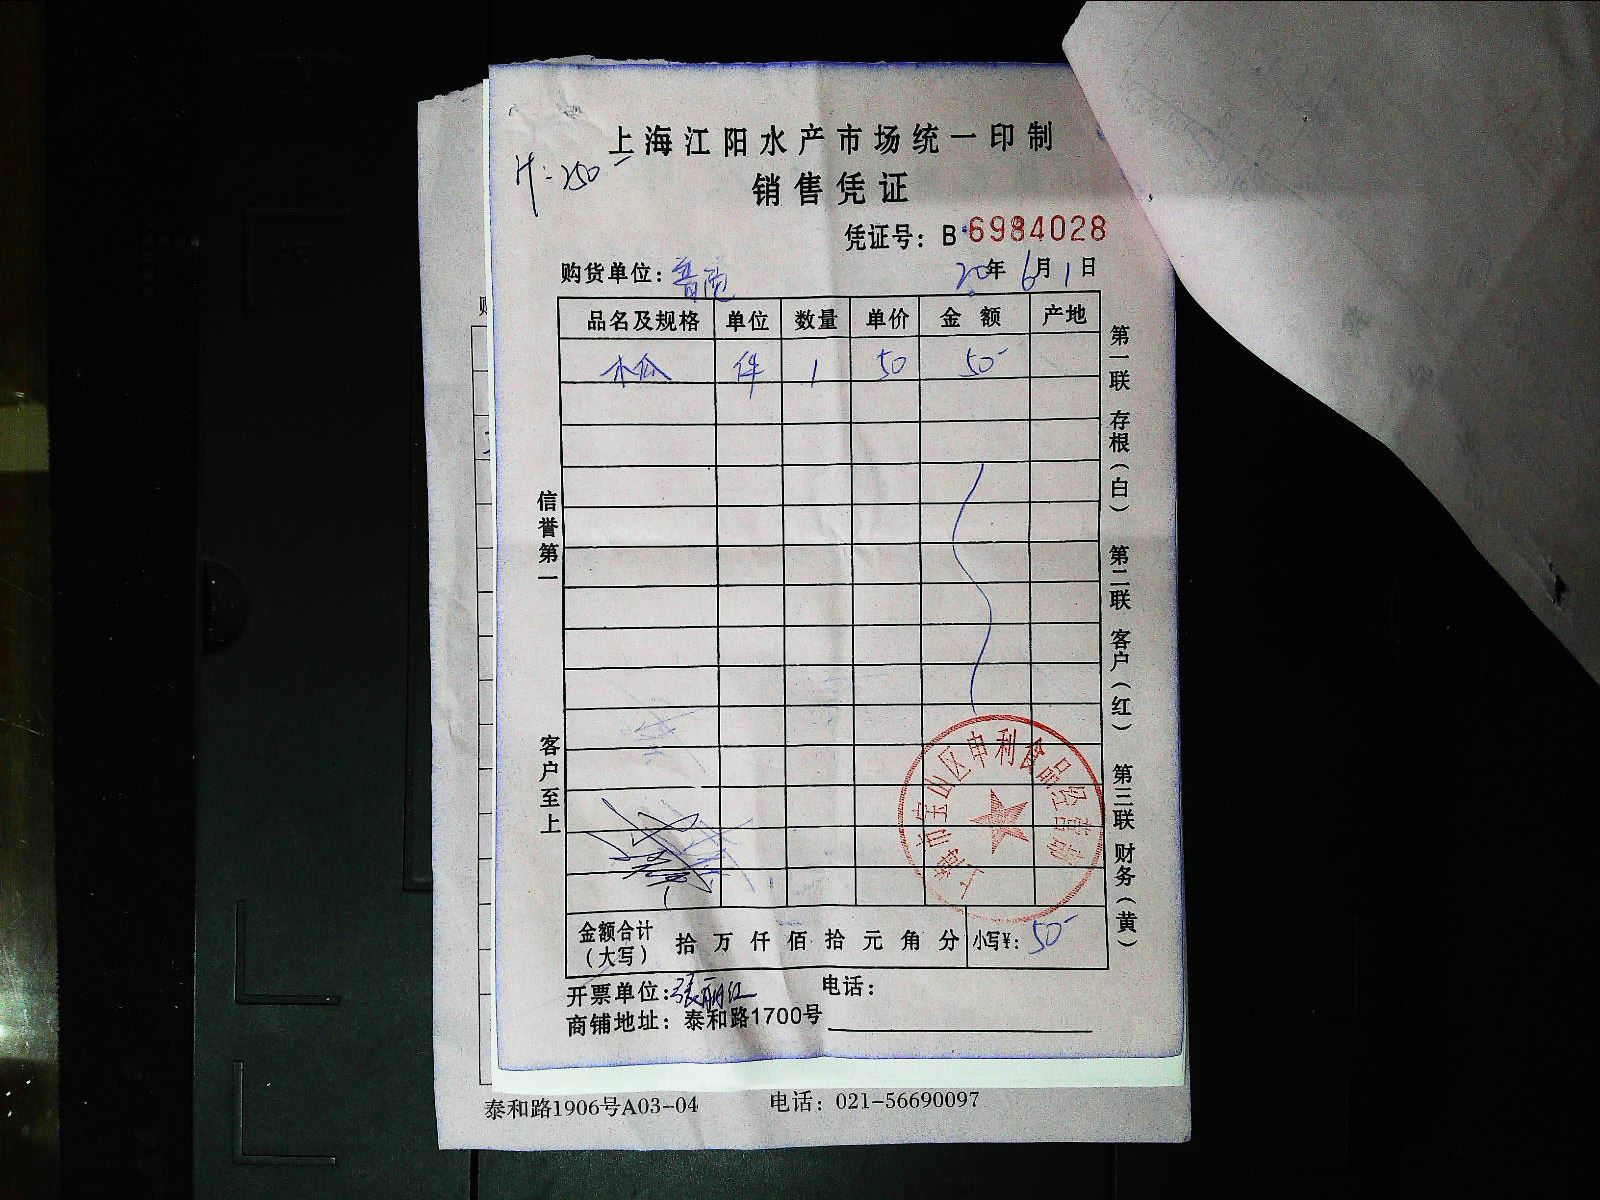 上海江阳水产市场统一印制
销售凭证
凭证号：B 6984028
购货单位：
20年6月1日
品名及规格 单位 数量 单价 金额 产地
木瓜 件 1 50 50-
信誉第一
客户至上
第一联 存根（白） 第二联 客户（红） 第三联 财务（黄）
上海市宝山区申利食品经营部
金额合计（大写） 拾 万 仟 佰 拾 元 角 分 小写¥：50-
开票单位：张丽红 电话：
商铺地址：泰和路1700号
泰和路1906号A03-04 电话：021-56690097